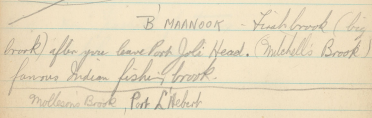 B' MAANOOK - Fishbrook (big
brook) after you leave Port Joli Head. (Mitchell's Brook)
famous Indian fishing brook.
Mollison's Brook, Port L'Hebert